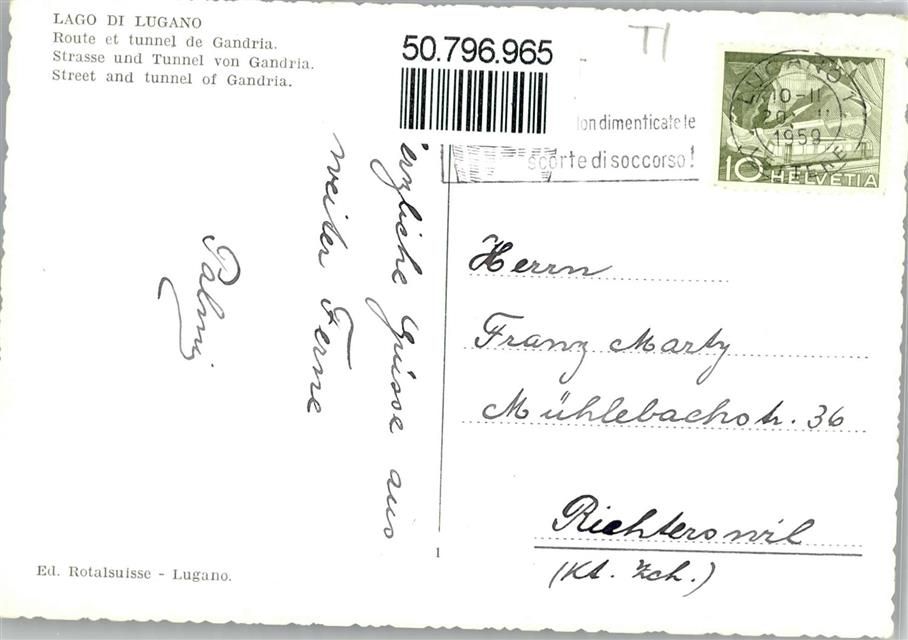 LAGO DI LUGANO
Route et tunnel de Gandria.
Strasse und Tunnel von Gandria.
Street and tunnel of Gandria.
50.796.965
T1
on dimenticate le
scorte di soccorso!
LUGANO 1
10-11
1959
10 HELVETIA
erzliche Grüsse aus
weiter Ferne
Palmi
Herrn
Franz Marty
Mühlebachstr. 36
Richterswil
(Kt. Zch.)
1
Ed. Rotalsuisse - Lugano.